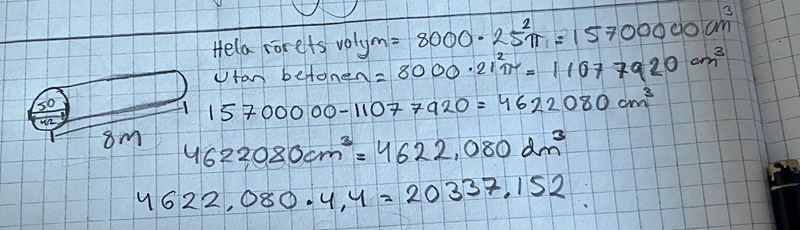 Hela rörets volym = 8000 · 25²π = 15700000 cm³
Utan betonen = 8000 · 21²π = 11077920 cm³
50
42
8M
15700000-11077920 = 4622080 cm³
4622080cm³ = 4622,080 dm³
4622,080 · 4,4 = 20337,152